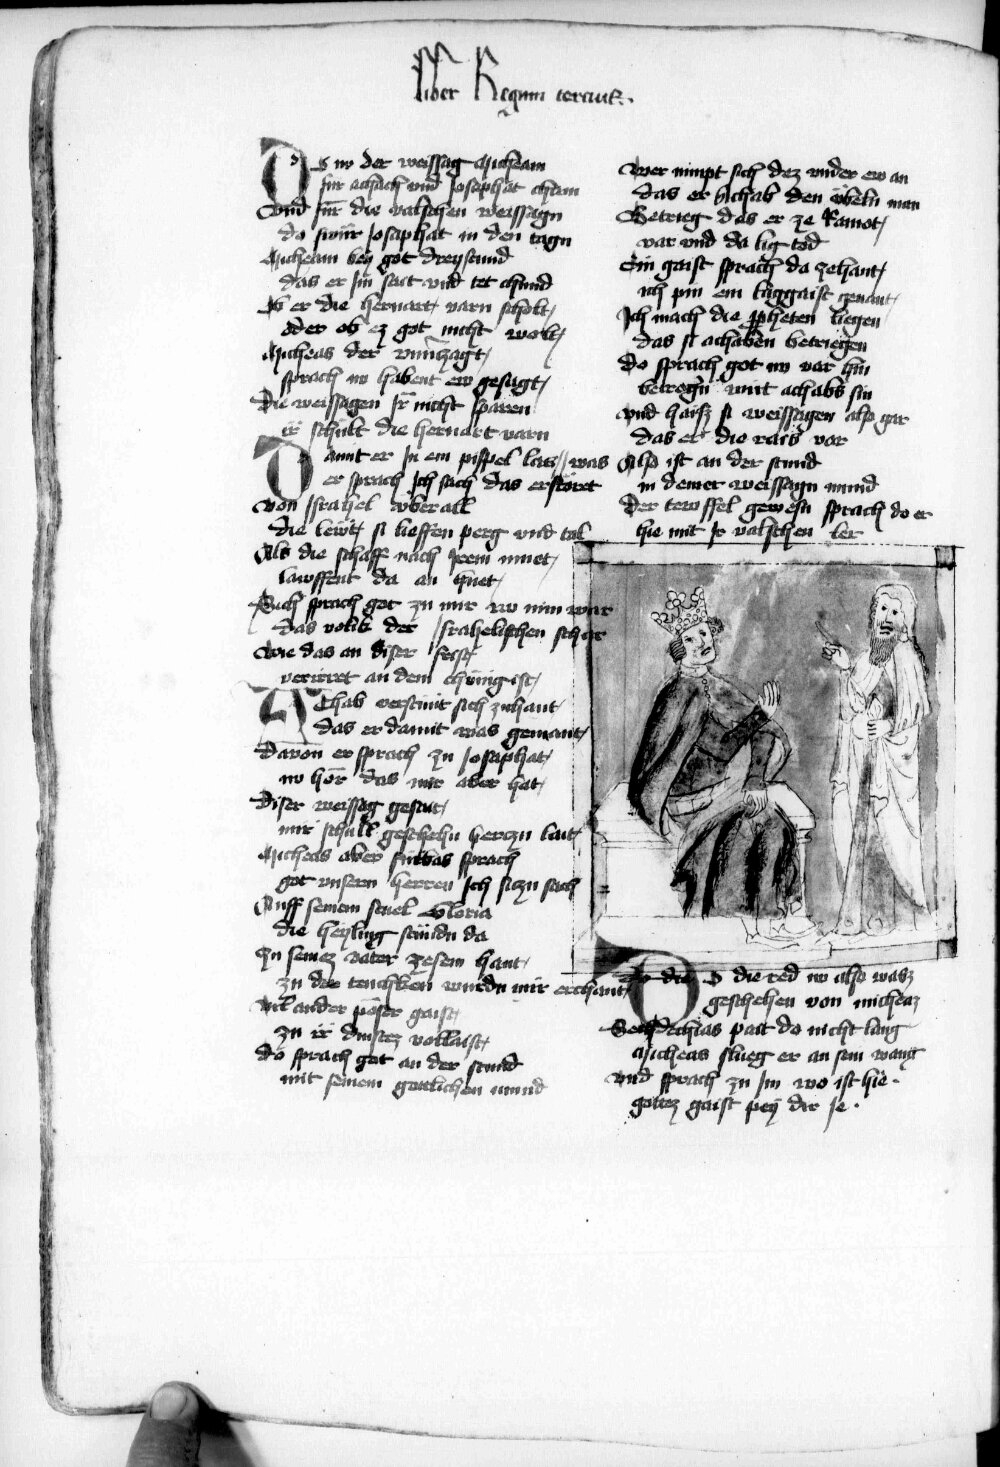 Liber Regum tercius
Do nv der weissag Micheam
für achach vnd Josaphat cham
Vnd für die valschen weissagn
do swür Josaphat in den tagn
Micheam bey got dreystund
das er Jm sait vnd tet chund
Ob er die heruart varn scholt
oder ob ez got nicht wolt
Micheas der vnuerzagt
sprach nv habent ew gesagt
Die weissagen Jr nicht sparen
ir schult die heruart varn
Damit er Jn ein pispel las was
er sprach Jch sach das erstöret
von Jsrahel vberall
die lewt si lieffen perg vnd tal
Als die schaff nach Jrem
lawffent da an huet
Auch sprach got zu mir nv nim war
das volk der Jsrahelischen schar
Wie das an diser frist
verirret an dem chünig ist
Achab verstuint sich zuhant
das er damit was gemant
Dauon er sprach zu Josaphat
nv hör das mir aber hat
Diser weissag gesait
mir schull geschehn herczn lait
Micheas aber fürbas sprach
got vnsern herren Jch siczn sach
Auff seinem stuel Gloria
die heyling stuendn da
Zu seinez vater zesem hant
zu der tenchken wurdn mir erchant
Vil ander pöser gaist
zu ir dinstez vollaist
Do sprach got an der stund
mit seinem gotlichen mund
Wer nimpt sich dez vnder ew an
das er Achab den übeln man
Betrieg das er ze Ramot
var vnd da lig tod
Ein gaist sprach da zehant
ich pin ein luggaist genant
Jch mach die propheten liegen
das si achaben betriegen
do sprach got nv var hin
betrogn wirt achabs sin
vnd haisz si weissagen also gar
das er die rais var
Also ist an der stund
in deiner weissagn mund
Der tewffel gewesn sprach do er
hie mit Jr valschen ler
Do die red nv also wasz
geschehen von micheaz
Sedechias pait do nicht lang
Micheas slueg er an sein wang
vnd sprach zu Jm wo ist hie
gottez gaist pey dir Je